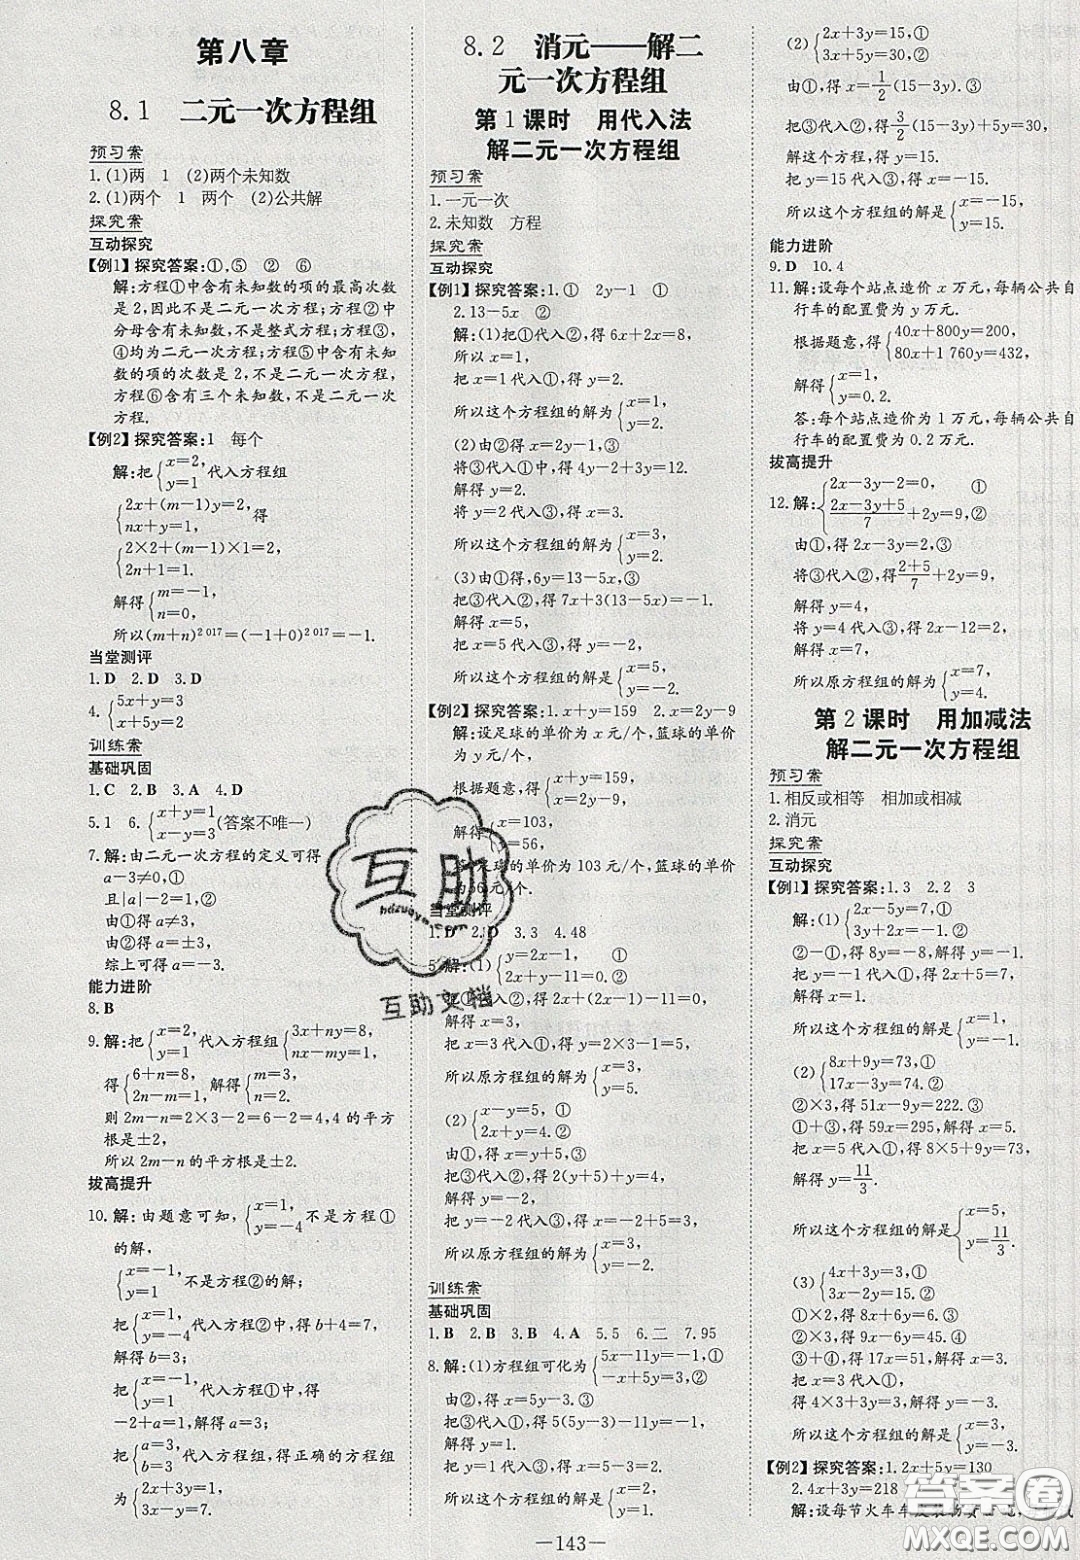 第八章
8.1 二元一次方程组
预习案
1.(1)两 1 (2)两个未知数
2.(1)两个 1 两个 (2)公共解
探究案
互动探究
【例1】探究答案:①,⑤ ② ⑥
解:方程①中含有未知数的项的最高次数
是2,因此不是二元一次方程;方程②中
分母含有未知数,不是整式方程;方程③,
④均为二元一次方程;方程⑤中含有未知
数的项的次数是2,不是二元一次方程,
方程⑥含有三个未知数,不是二元一次
方程.
【例2】探究答案:1 每个
解:把{x=2, y=1代入方程组
{2x+(m-1)y=2, nx+y=1, 得
{2×2+(m-1)×1=2, 2n+1=1.
解得{m=-1, n=0,
所以(m+n)²⁰¹⁷=(-1+0)²⁰¹⁷=-1.
当堂测评
1.D 2.D 3.D
4.{5x+y=3 x+5y=2
训练案
基础巩固
1.C 2.B 3.A 4.D
5.1 6.{x+y=1 x-y=3(答案不唯一)
7.解:由二元一次方程的定义可得
a-3≠0,①
且|a|-2=1,②
由①得a≠3,
由②得a=±3,
综上可得a=-3.
能力进阶
8.B
9.解:把{x=2, y=1代入方程组{3x+ny=8, nx-my=1,
得{6+n=8, 2n-m=1,解得{n=2, m=3.
则2m-n=2×3-2=6-2=4,4的平方
根是±2,
所以2m-n的平方根是±2.
拔高提升
10.解:由题意可知,{x=1, y=-4不是方程①
的解,
{x=-1, y=1不是方程②的解;
把{x=1, y=-4代入方程②,得b+4=7,
解得b=3,
把{x=-1, y=1代入方程①,得
-2+a=1,解得a=3.
把{a=3, b=3代入方程组,得正确的方程组
为{2x+3y=1, 3x-y=7.
8.2 消元——解二
元一次方程组
第1课时 用代入法
解二元一次方程组
预习案
1.一元一次
2.未知数 方程
探究案
互动探究
【例1】探究答案:1.① 2y-1 ①
2.13-5x ②
解:(1)把①代入②,得6x+2x=8,
所以x=1,
把x=1代入①,得y=2.
所以这个方程组的解为{x=1, y=2.
(2)由②得x=2y-1,③
将③代入①中,得4y-2+3y=12.
解得y=2.
将y=2代入③,得x=3.
所以这个方程组的解为{x=3, y=2.
(3)由①得,6y=13-5x,③
把③代入②,得7x+3(13-5x)=-1.
解得x=5,
把x=5代入③,得y=-2.
所以这个方程组的解为{x=5, y=-2.
【例2】探究答案:1.x+y=159 2.x=2y-9
解:设足球的单价为x元/个,篮球的单价
为y元/个,
根据题意,得{x+y=159, x=2y-9,
解得{x=103, y=56,
足球的单价为103元/个,篮球的单价
为56元/个.
当堂测评
1.D 2.D 3.3 4.48
5.解:(1){y=2x-1, ① 2x+y-11=0.②
①代入②,得2x+(2x-1)-11=0,
解得x=3,
把x=3代入①,得y=2×3-1=5,
所以原方程组的解为{x=3, y=5.
(2){x-y=5,① 2x+y=4.②
由①,得x=y+5,③
把③代入②,得2(y+5)+y=4,
解得y=-2,
把y=-2代入③,得x=-2+5=3,
所以原方程组的解为{x=3, y=-2.
训练案
基础巩固
1.B 2.B 3.B 4.A 5.5 6.二 7.95
8.解:(1)方程组可化为{5x-11y=-1,① -x+5y=3,②
由②,得x=5y-3,③
把③代入①,得5(5y-3)-11y=-1,
解得y=1.
把y=1代入③,得x=5-3=2.
所以这个方程组的解是{x=2, y=1.
(2){2x+3y=15,① 5x+3y=30.②
由①得:x=1/2(15-3y),③
把③代入②得:5/2(15-3y)+3y=30,
解这个方程,得y=15.
把y=15代入③,得x=-15.
所以这个方程组的解是{x=-15, y=15.
能力进阶
9.D 10.4
11.解:设每个站点造价x万元,每辆公共自
行车的配置费为y万元.
根据题意,得{40x+800y=200, 80x+1 760y=432,
解得{x=1, y=0.2.
答:每个站点造价为1万元,每辆公共自
行车的配置费为0.2万元.
拔高提升
12.解:{2x-3y-2=0, ① (2x-3y+5)/7+2y=9,②
由①,得2x-3y=2,③
将③代入②,得(2+5)/7+2y=9,
解得y=4,
将y=4代入③,得2x-12=2,
解得x=7,
所以原方程组的解是{x=7, y=4.
第2课时 用加减法
解二元一次方程组
预习案
1.相反或相等 相加或相减
2.消元
探究案
互动探究
【例1】探究答案:1.3 2.2 3
解:(1){2x-5y=7,① 3y+2x=-1.②
②-①,得8y=-8,解得y=-1.
把y=-1代入①,得2x+5=7,
解得x=1.
所以这个方程组的解是{x=1, y=-1.
(2){8x+9y=73,① 17x-3y=74.②
②×3,得51x-9y=222.③
①+③,得59x=295,解得x=5.
把x=5代入①,得8×5+9y=73,
解得y=11/3.
所以这个方程组的解是{x=5, y=11/3.
(3){4x+3y=3,① 3x-2y=15.②
①×2,得8x+6y=6.③
②×3,得9x-6y=45.④
③+④,得17x=51,解得x=3.
把x=3代入①,
得4×3+3y=3,解得y=-3.
所以这个方程组的解是{x=3, y=-3.
【例2】探究答案:1.2x+5y=130
2.4x+3y=218
解:设每节火车车
—143—
互助
hdzuoye.com
互助文档
答案圈
MXQE.COM